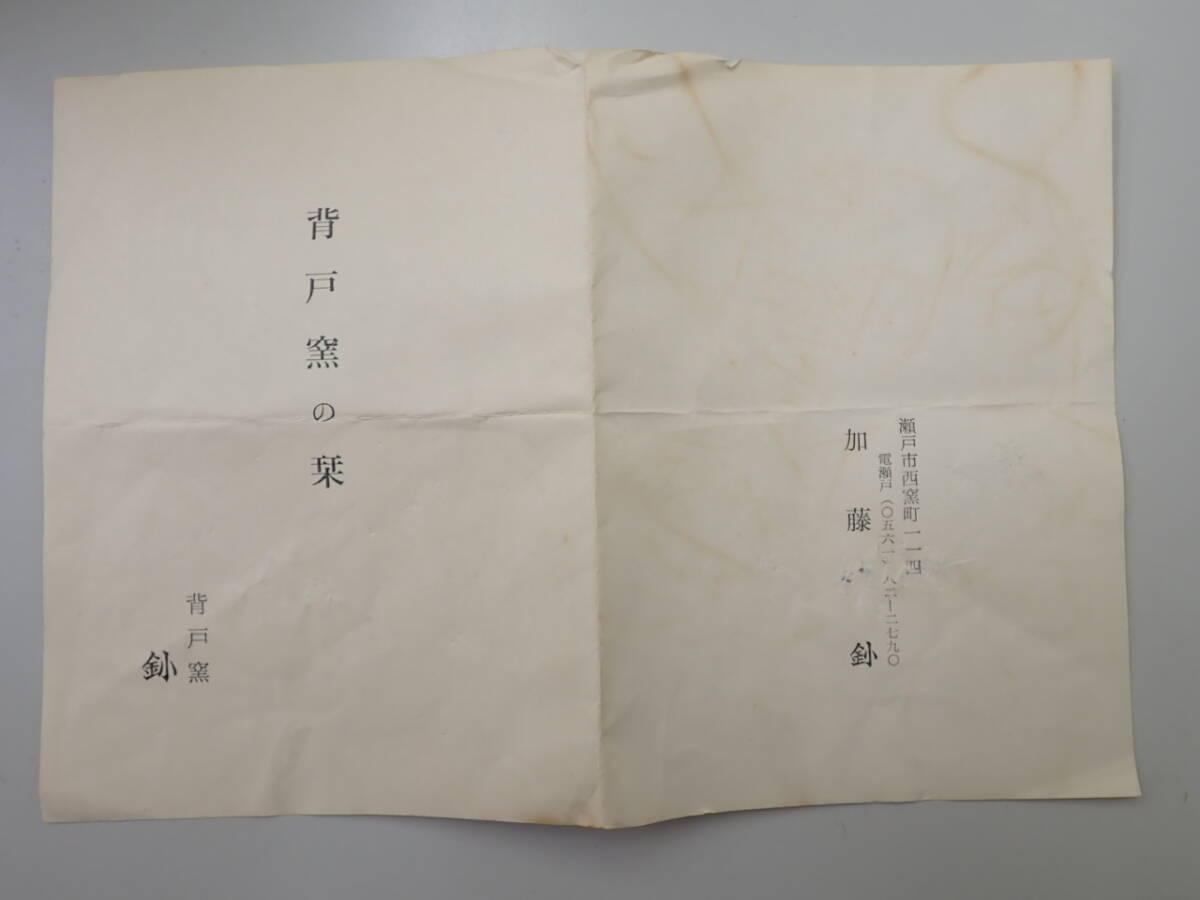 瀬戸市西窯町一一四
電瀬戸（〇五六一）―二七九〇
加藤釥
背戸窯の栞
背戸窯
釥